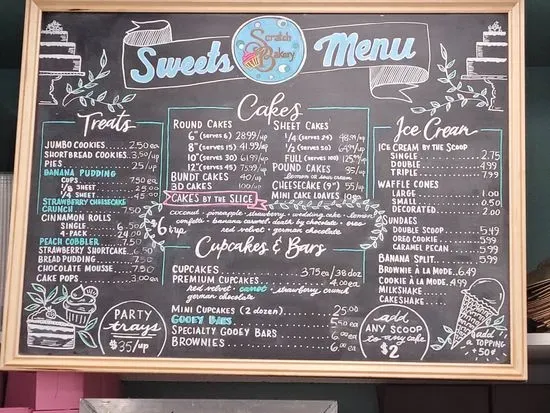 Sweets Scratch Bakery Menu
Treats
JUMBO COOKIES 2.50 ea
SHORTBREAD COOKIES 3.50/up
PIES 25/up
BANANA PUDDING
CUPS 7.50 ea
1/8 SHEET 25.00
1/4 SHEET 45.00
STRAWBERRY CHEESECAKE
CRUNCH 7.50
CINNAMON ROLLS
SINGLE 6.50
4-PACK 24.00
PEACH COBBLER 7.50
STRAWBERRY SHORTCAKE 6.50
BREAD PUDDING 7.50
CHOCOLATE MOUSSE 7.50
CAKE POPS 3.00 ea
PARTY
trays
$35/up
Cakes
ROUND CAKES
6" (SERVES 6) 28.99/up
8" (SERVES 15) 41.99/up
10" (SERVES 30) 61.99/up
12" (SERVES 45) 75.99/up
BUNDT CAKES 40/up
3D CAKES 100/up
CAKES BY THE SLICE
SHEET CAKES
1/4 (SERVES 24) 48.99/up
1/2 (SERVES 50) 64.99/up
FULL (SERVES 100) 125.99/up
POUND CAKES 45/up
lemon or sour cream
CHEESECAKE (9") 55/up
MINI CAKE LOAVES 10/up
$6/up
coconut · pineapple · strawberry · wedding cake · lemon
confetti · banana caramel · death by chocolate · oreo
red velvet · german chocolate
Cupcakes & Bars
CUPCAKES 3.75 ea / 38 doz
PREMIUM CUPCAKES 4.00 ea
red velvet · carrot · strawberry crunch
german chocolate
MINI CUPCAKES (2 dozen) 25.00
GOOEY BARS 5.50 ea
SPECIALTY GOOEY BARS 6.00 ea
BROWNIES 6.00 ea
Ice Cream
ICE CREAM BY THE SCOOP
SINGLE 2.75
DOUBLE 4.99
TRIPLE 7.99
WAFFLE CONES
LARGE 1.00
SMALL 0.50
DECORATED 2.00
SUNDAES
DOUBLE SCOOP 5.49
OREO COOKIE 5.99
CARAMEL PECAN 5.99
BANANA SPLIT 5.99
BROWNIE À LA MODE 6.49
COOKIE À LA MODE 4.99
MILKSHAKE
CAKESHAKE
add
ANY SCOOP
to any cake
$2
add
a TOPPING
+50¢